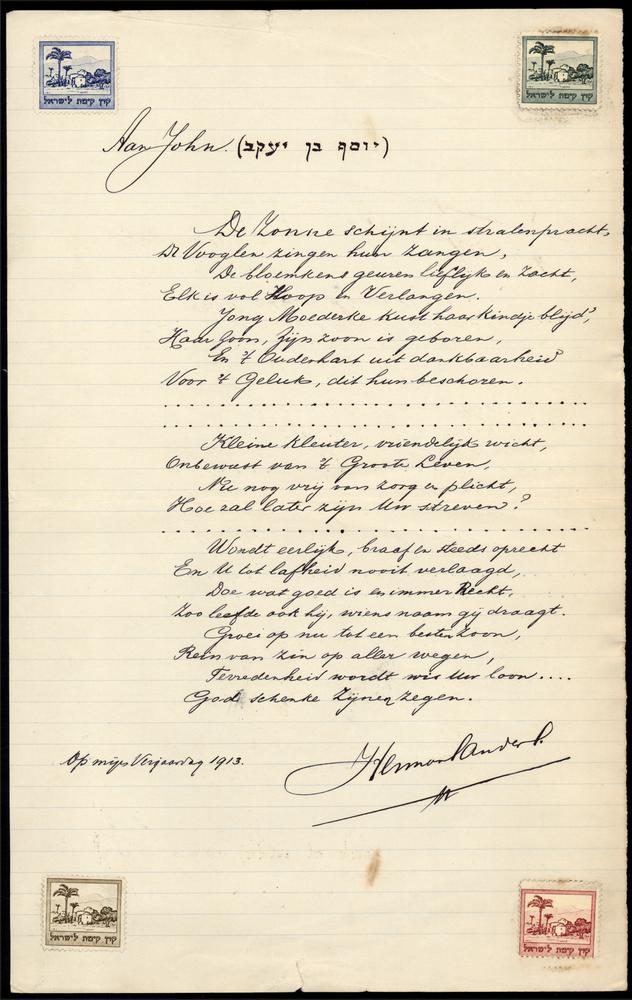 קרן קימת לישראל
קרן קימת לישראל
Aan John. (יוסף בן יעקב)
De Zonne schijnt in stralenpracht,
De Vooglen zingen hun zangen,
De bloemkens geuren lieflijk en zacht,
Elk is vol Hoop en Verlangen.
Jong Moederke kust haar kindje blijd',
Haar zoon, zijn zoon is geboren,
En 't Ouderhart uit dankbaarheid
Voor 't Geluk, dit hun beschoren.
Kleine kleuter, vriendelijk wicht,
Onbewust van 't Groote Leven,
Nu nog vrij van zorg en plicht,
Hoe zal later zijn Uw streven?
Wordt eerlijk, braaf en steeds oprecht
En U tot lafheid nooit verlaagd,
Doe wat goed is en immer Recht,
Zoo leefde ook hij, wiens naam gij draagt.
Groei op nu tot een besten zoon,
Rein van zin op aller wegen,
Tevredenheid wordt wis Uw loon....
God schenke Zijnen zegen.
Op mijn Verjaardag 1913.
קרן קימת לישראל
קרן קימת לישראל